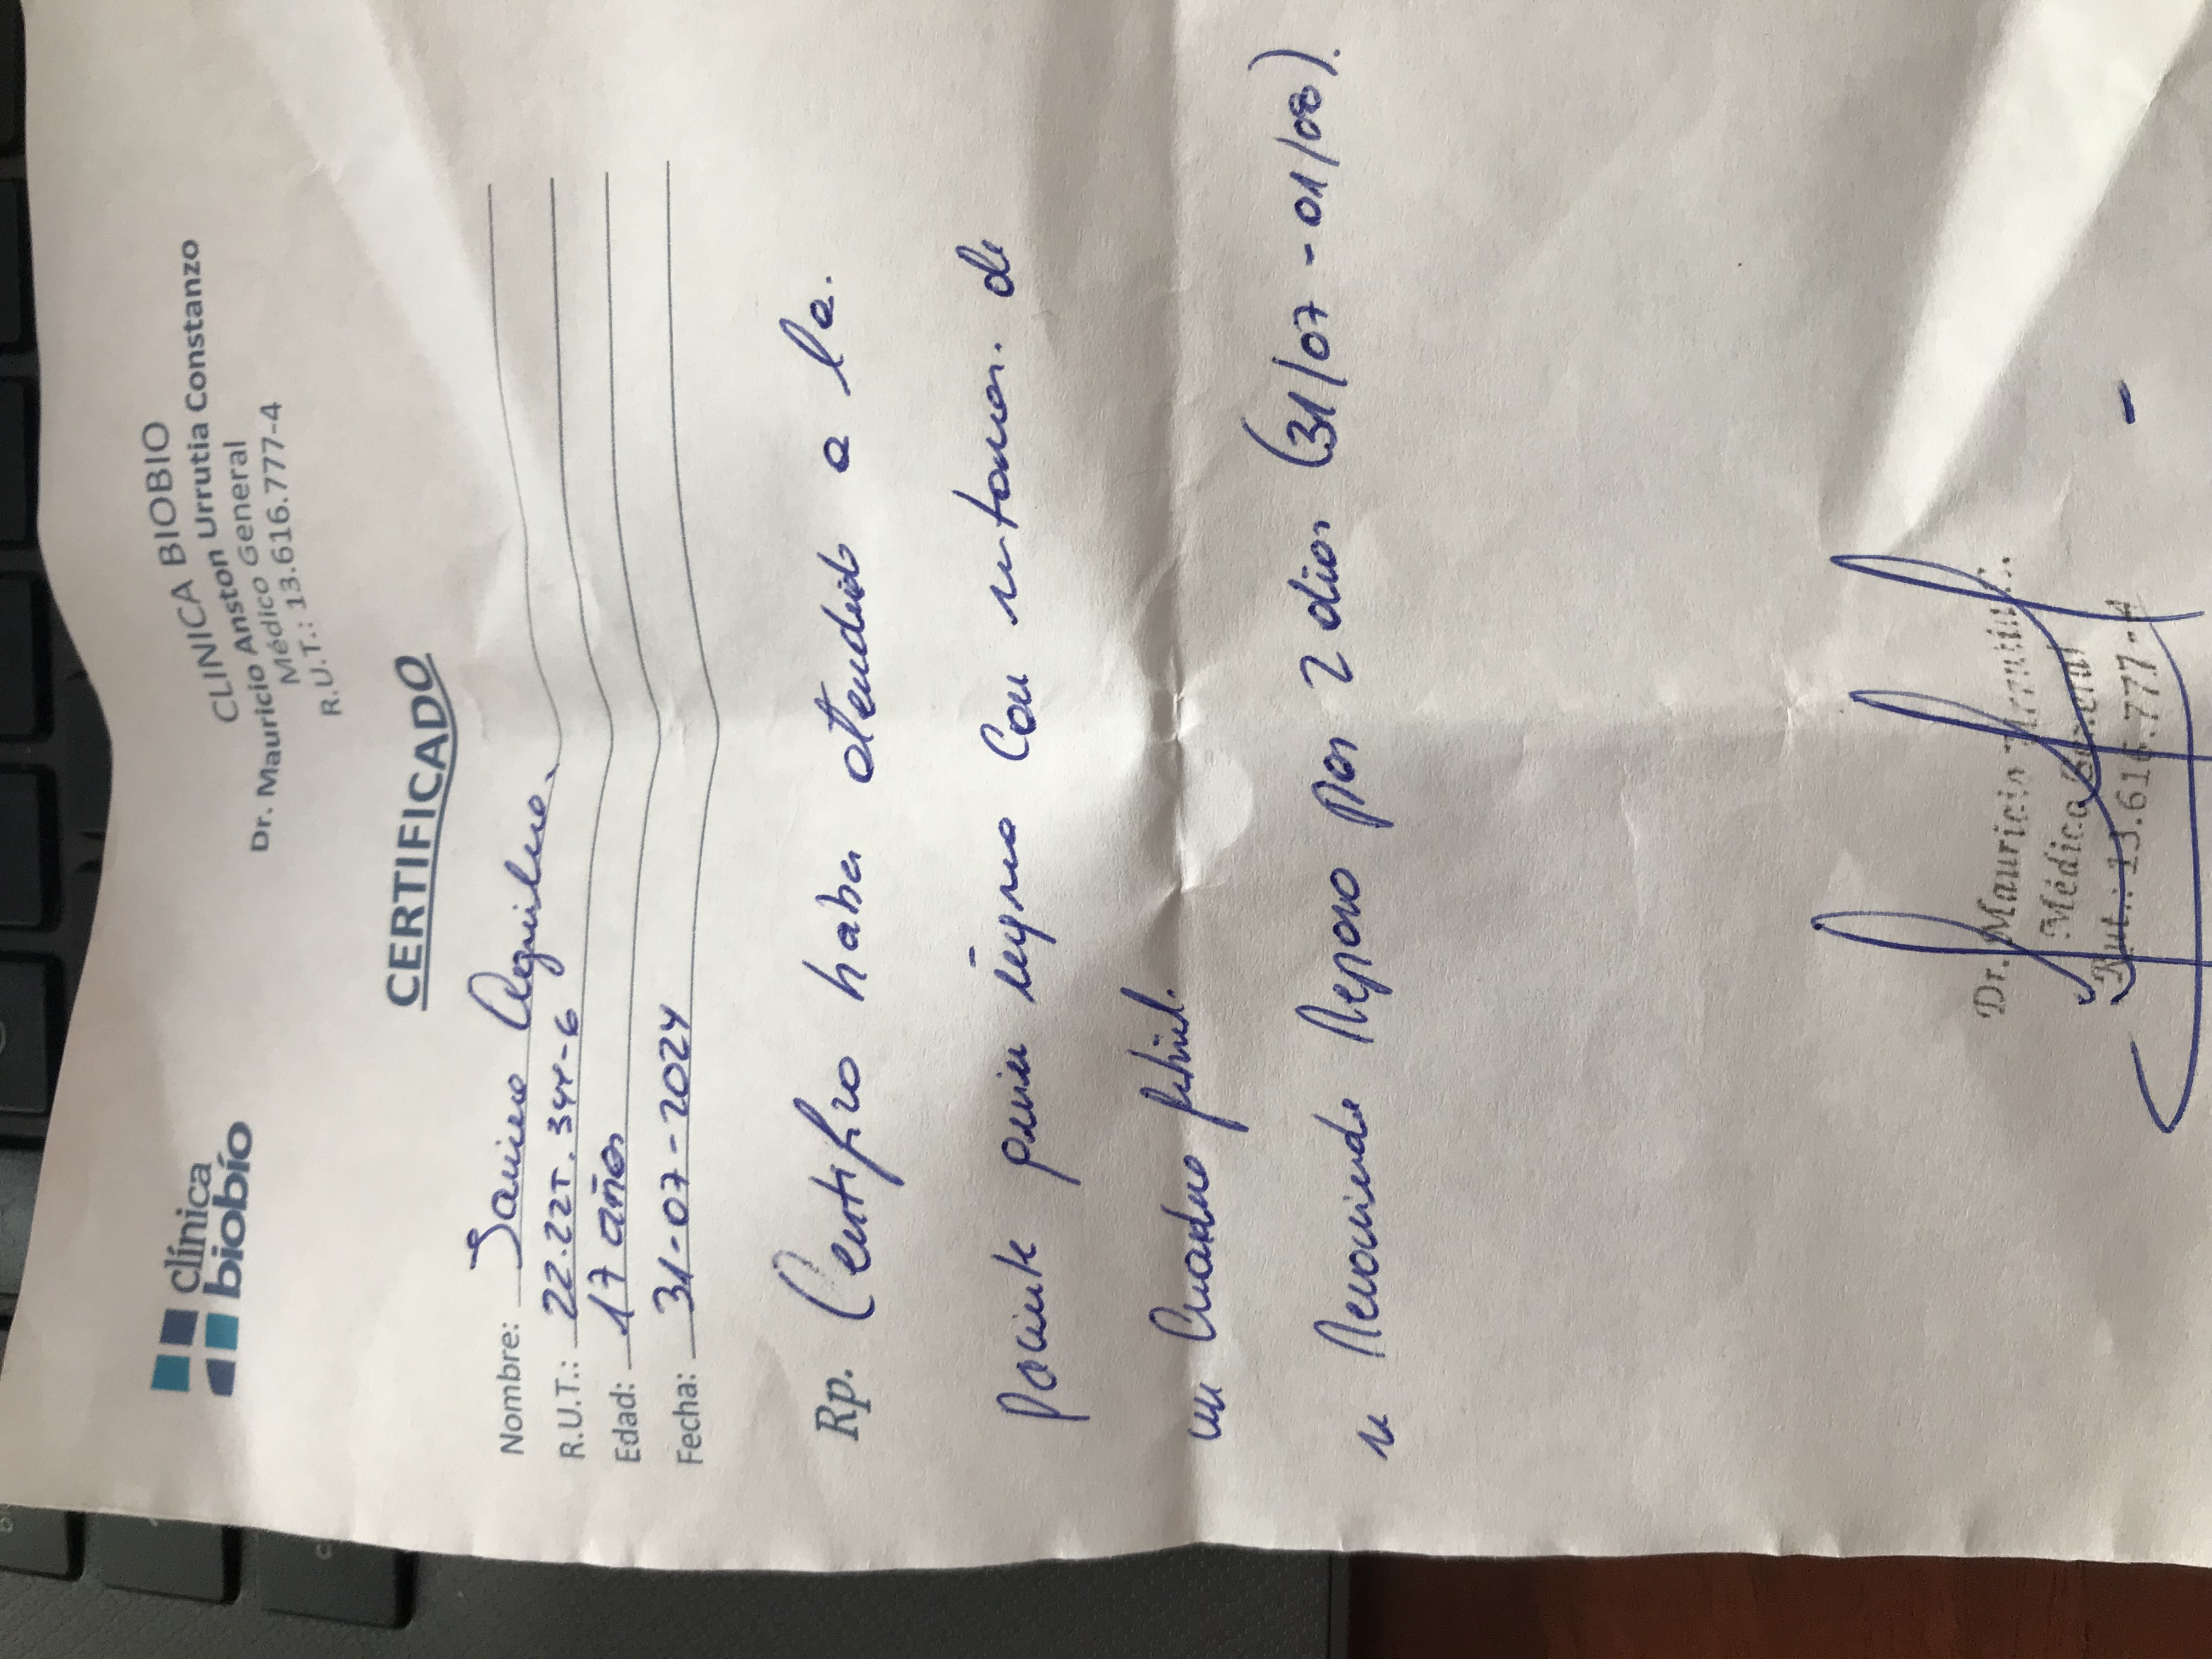 clínica
biobío
CLINICA BIOBIO
Dr. Mauricio Anston Urrutia Constanzo
Médico General
R.U.T.: 13.616.777-4
CERTIFICADO
Nombre:
R.U.T.: 22.22T.344-6
Edad: 17 años
Fecha: 31-07-2024
Rp. Certifico haber atendido a la
paciente
un cuadro febril.
se recomienda Reposo por 2 días (31/07-01/08).
Dr. Mauricio
Rut.: 13.616.777-4